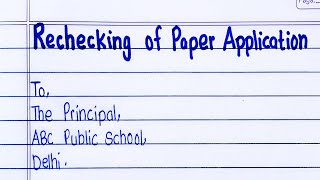 Page:
Rechecking of Paper Application
To,
The Principal,
ABC Public School,
Delhi.